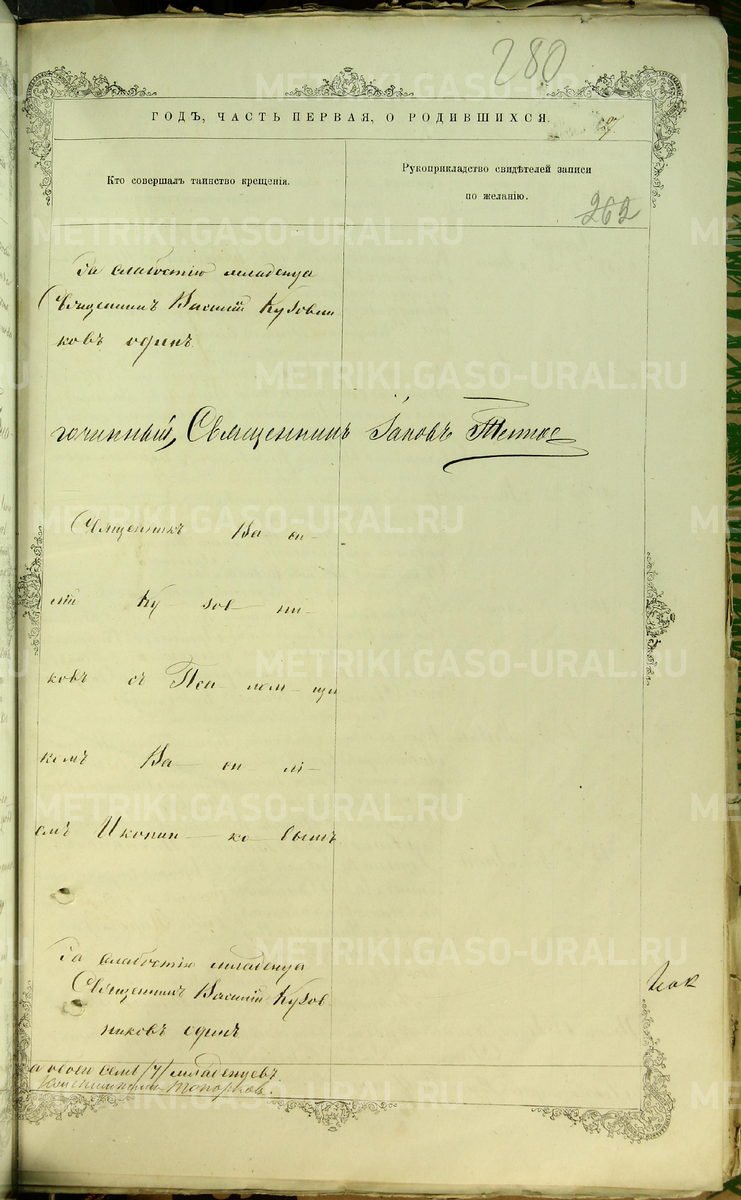 280
ГОДЪ, ЧАСТЬ ПЕРВАЯ, О РОДИВШИХСЯ.
Кто совершалъ таинство крещенія.
Рукоприкладство свидѣтелей записи
по желанію.
262
За слабостію младенца
Священникъ Василій Кузовни
ковъ одинъ
гочинный, Священникъ Іаковъ
Священникъ Ва си-
лій Ку зов ни-
ковъ съ Пса-лом-щи
комъ Ва си лі-
емъ Иконни-ко вымъ
За слабостію младенца
Священникъ Василій Кузов
никовъ одинъ
младенцевъ
Топорковъ.
METRIKI.GASO-URAL.RU